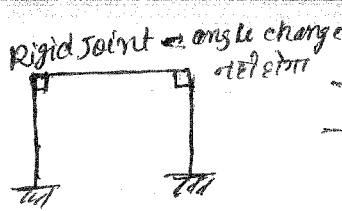 Rigid Joint → angle change
नही होगा